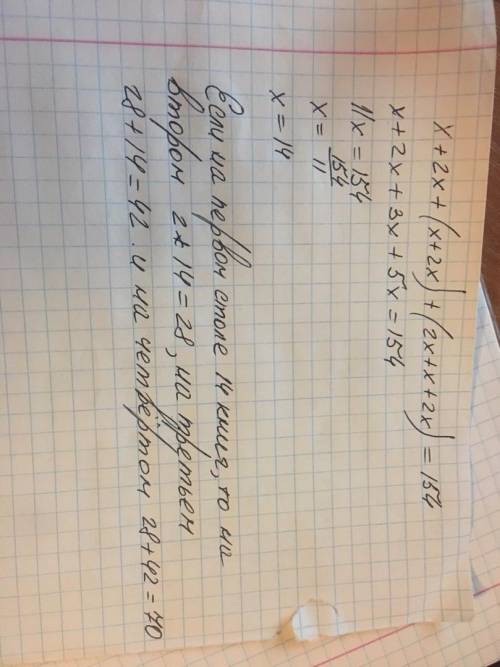 x+2x+(x+2x)+(2x+x+2x)=154
x+2x+3x+5x=154
11x=154
x=154/11
x=14
Если на первом столе 14 книг, то на
втором 2*14=28, на третьем
28+14=42. и на четвёртом 28+42=70